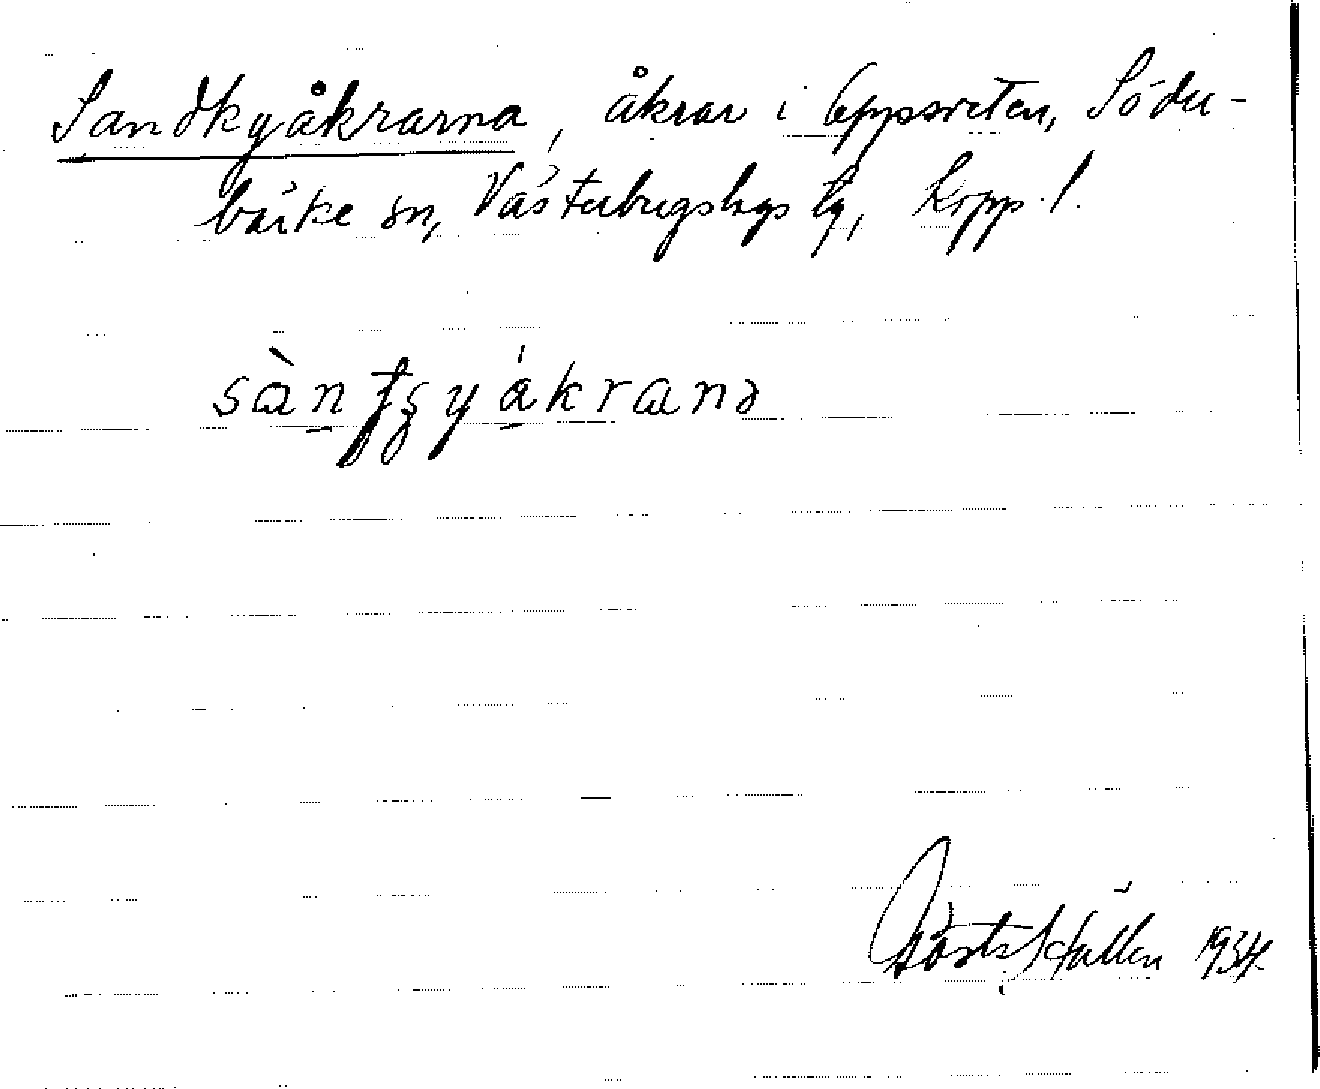 Sandkyåkrarna, åkrar i Uppsveten, Söder-
bärke sn, Västerbergslags tg, Kopp. l.
sàn̠ ʂyåkranə
Gösta Hallén 1934